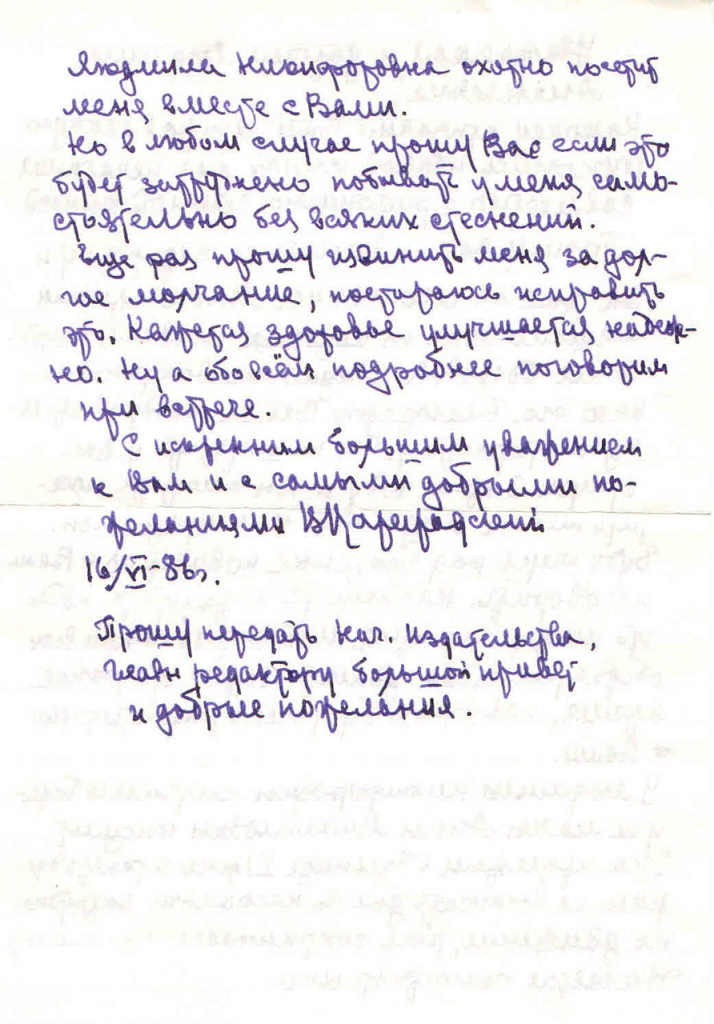 Людмила Никифоровна охотно посетит
меня вместе с Вами.
Но в любом случае прошу Вас если это
будет затруднено побывать у меня само-
стоятельно без всяких стеснений.
Еще раз прошу извинить меня за дол-
гое молчание, постараюсь исправить
это. Кажется здоровье улучшается надеж-
но. Ну а обо всём подробнее поговорим
при встрече.
С искренним большим уважением
к Вам и с самыми добрыми по-
желаниями В Цареградский
16/VI-86г.
Прошу передать нач. издательства,
главн редактору большой привет
и добрые пожелания.